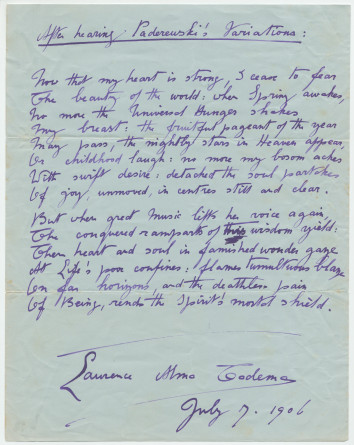 After hearing Paderewski's Variations:
Now that my heart is strong, I cease to fear
The beauty of the world: when Spring awakes,
No more the Universal Hunger shakes
My breast: the fruitful pageant of the year
May pass, the nightly stars in Heaven appear,
Or childhood laugh: no more my bosom aches
With swift desire: detached the soul partakes
Of joy, unmoved, in centres still and clear.
But when great Music lifts her voice again,
The conquered ramparts of wisdom yield:
Then heart and soul in famished wonder gaze
At Life's poor confines: flames tumultuous blaze
On far horizons, and the deathless pain
Of Being, rends the Spirit's mortal shield.
Laurence Alma Tadema
July 7. 1906